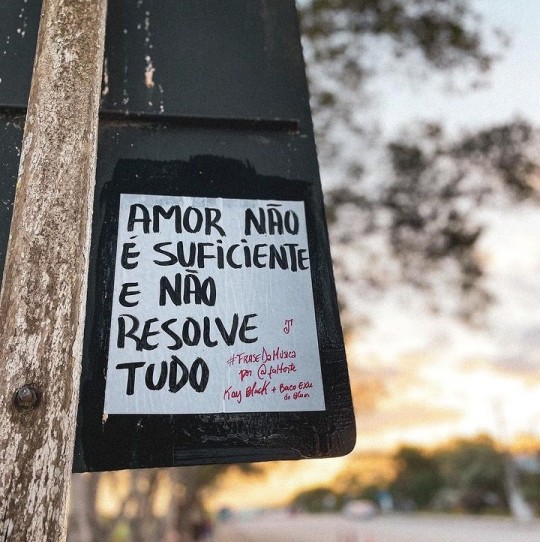 AMOR NÃO
É SUFICIENTE
E NÃO
RESOLVE
TUDO
#FRASEDAMÚSICA
por
Kay Black + BACO EXU
do Blues